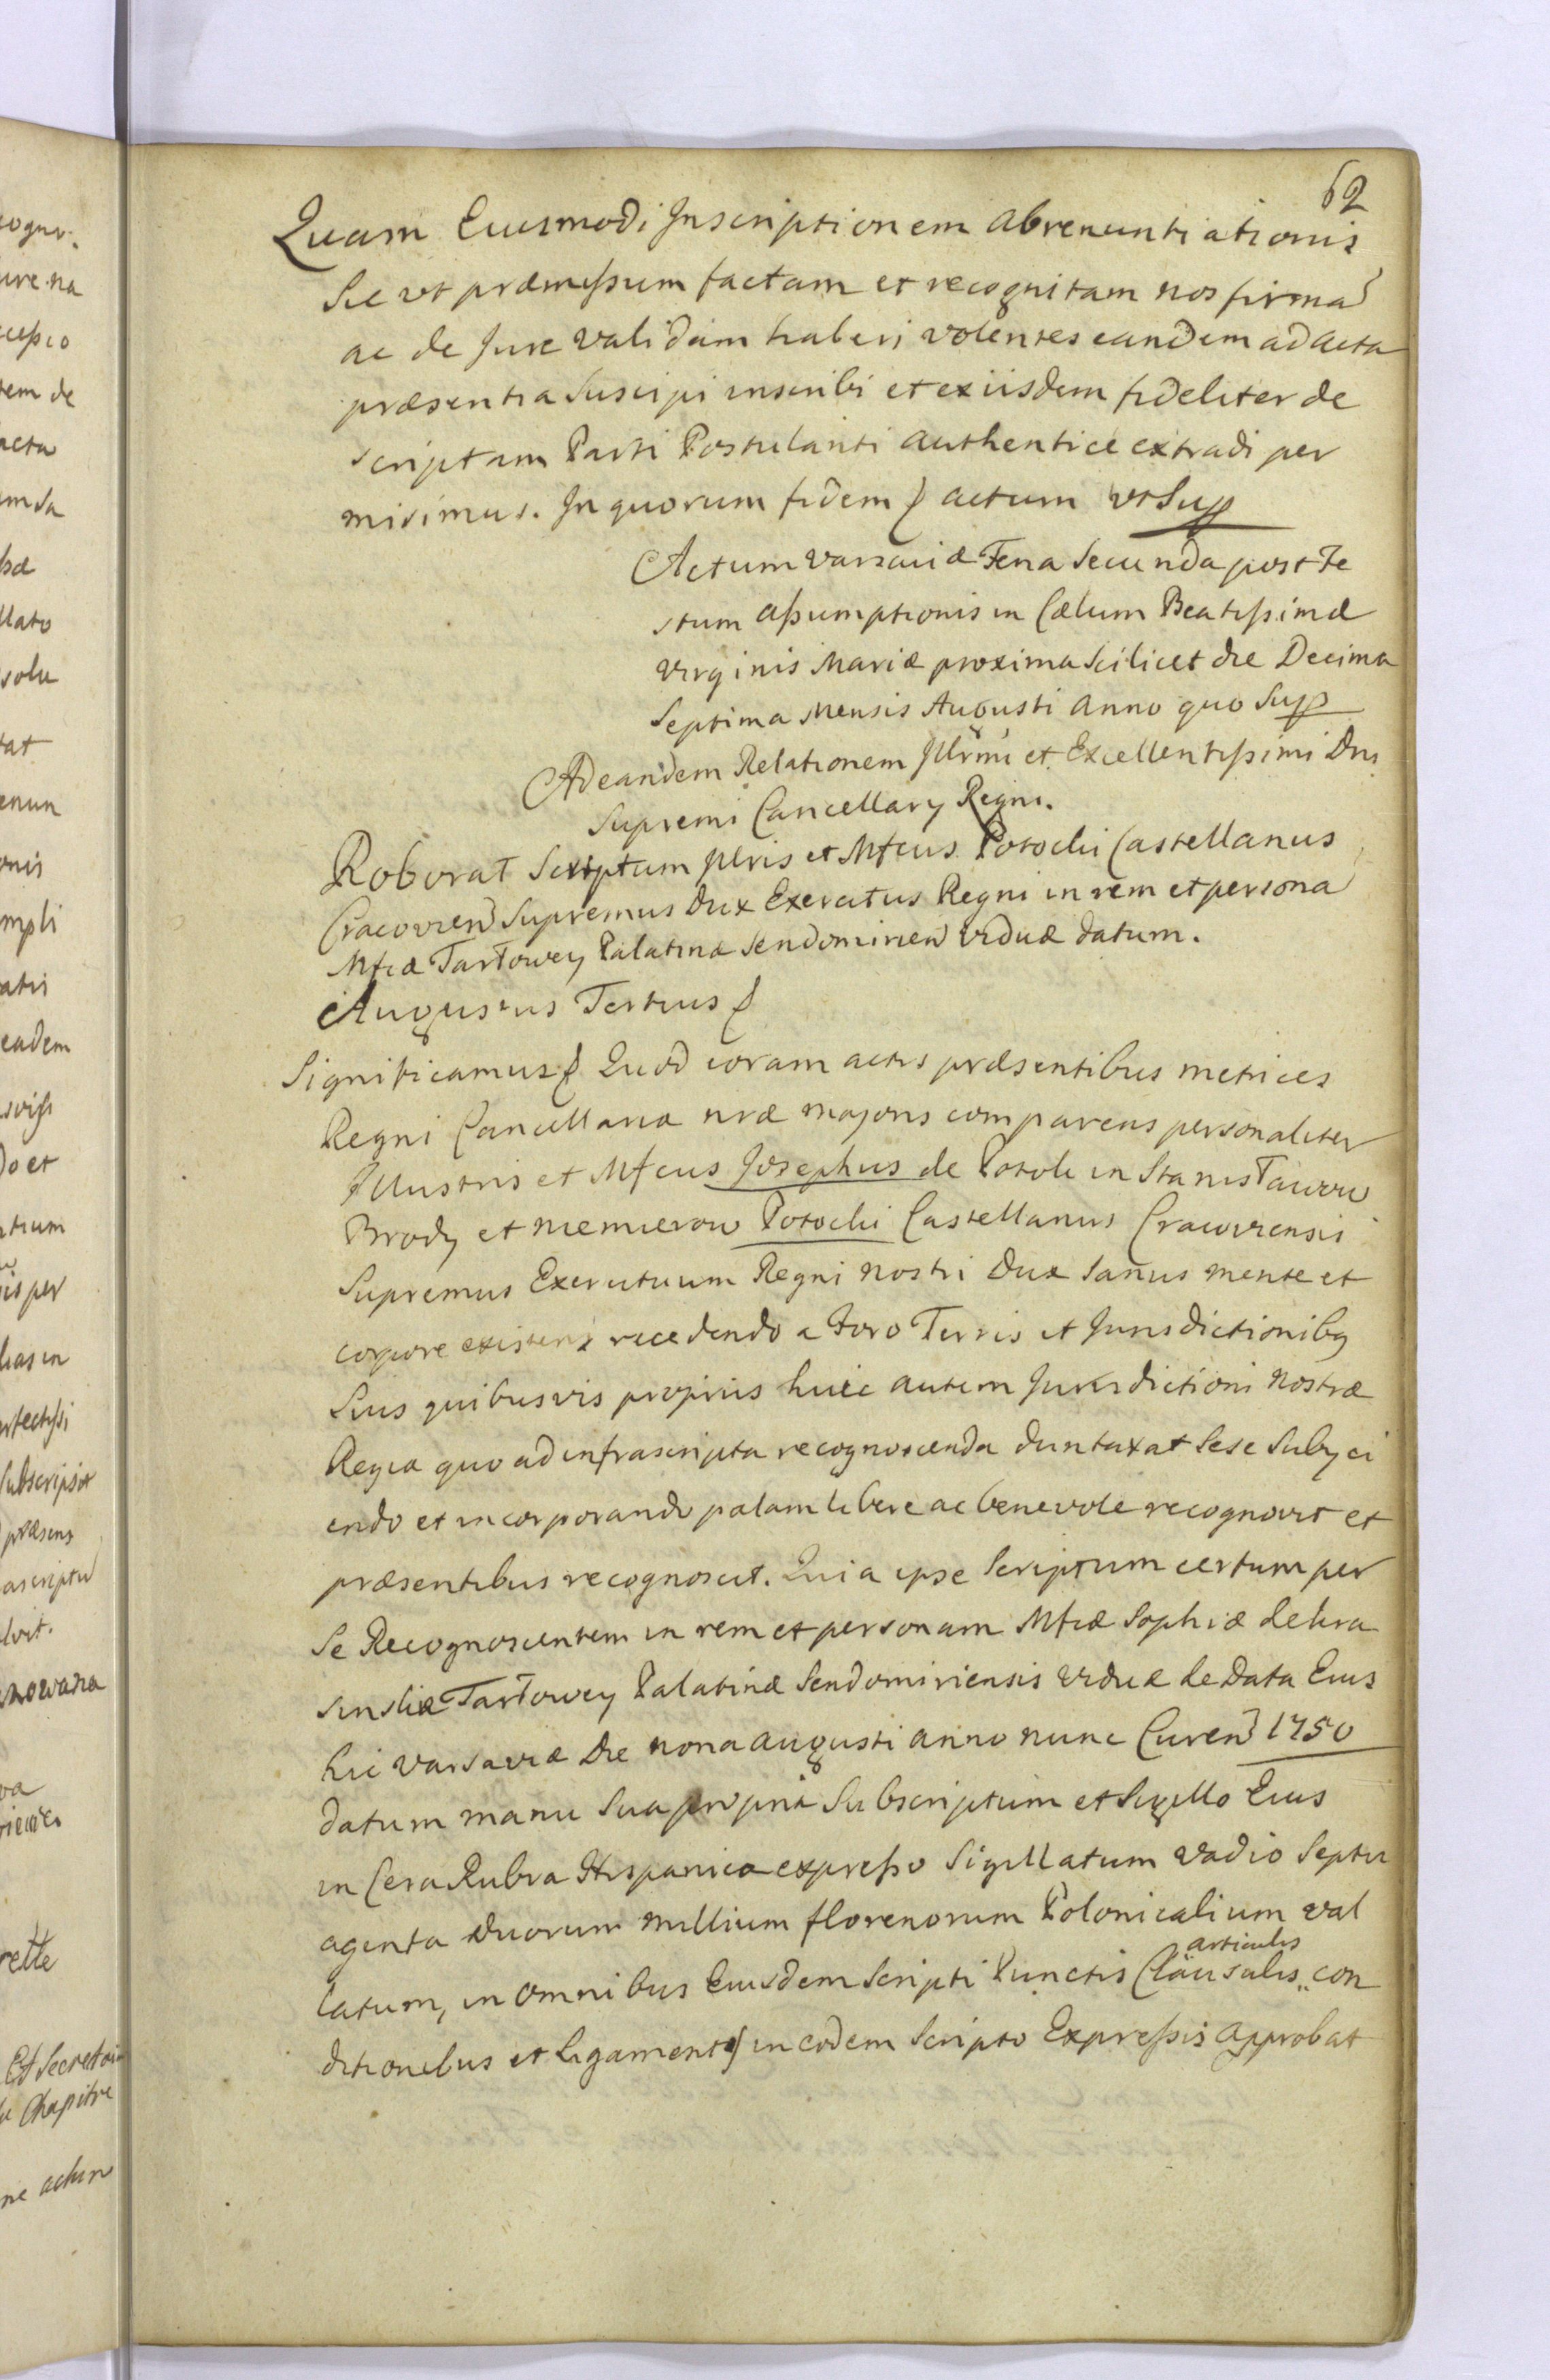 62
Quam Eiusmodi Inscriptionem abrenuntiationis
Sic ut præmissum factam et recognitam nos firma
ac de Jure validam haberi volentes eandem ad acta
præsentia Suscipi inscribi et ex iisdem fideliter de
scriptam Parti Postulanti authentice extradi per
misimus. In quorum fidem actum ut Sup
Actum Varsaviæ Feria Secunda post Fe
stum assumptionis in Cælum Beatissimæ
Virginis Mariæ proxima Scilicet die Decima
Septima Mensis Augusti Anno quo Sup
Ad eandem Relationem Illrmi et Excellentissimi Dni
Supremi Cancellarÿ Regni.
Roborat Scriptum Illris et Mfcus Potocki Castellanus
Cracovien Supremus Dux Exercitus Regni in rem et persona
Mfcæ Tarłowey Palatinæ Sendomirien viduæ datum.
Augustus Tertius
Significamus Quod coram actis præsentibus metrices
Regni Cancellariæ nræ majoris comparens personaliter
Illustris et Mfcus Josephus de Potok in Stanisławow
Brody et Niemierow Potocki Castellanus Cracoviensis
Supremus Exercituum Regni nostri Dux sanus mente et
corpore existens recedendo a Foro Terris et Jurisdictionibq
Suis quibusvis propriis huic autem Jurisdictioni nostræ
Regiæ quo ad infrascripta recognoscenda duntaxat Sese Subÿci
endo et incorporando palam libere ac benevole recognovit et
præsentibus recognoscit. Quia ipse Scriptum certum per
Se Recognoscentem in rem et personam Mfcæ Sophiæ de Kra
sinskie Tarłowey Palatinæ Sendomiriensis viduæ de Data Eius
hic Varsaviæ Die nona augusti anno nunc Curen 1750
datum manu Sua propria Subscriptum et Sigillo Eius
in Cera Rubra Hispanica expresso Sigillatum vadio Septu
aginta duorum millium florenorum Polonicalium val
articulis
latum, in omnibus Eiusdem Scripti Punctis Clausulis con
ditionibus et Ligamentis in eodem Scripto Expressis approbat